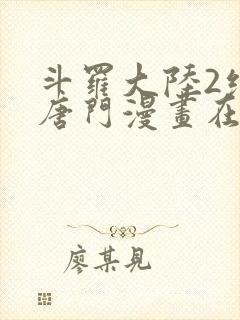 斗羅大陸2
唐門漫畫在
廖某見